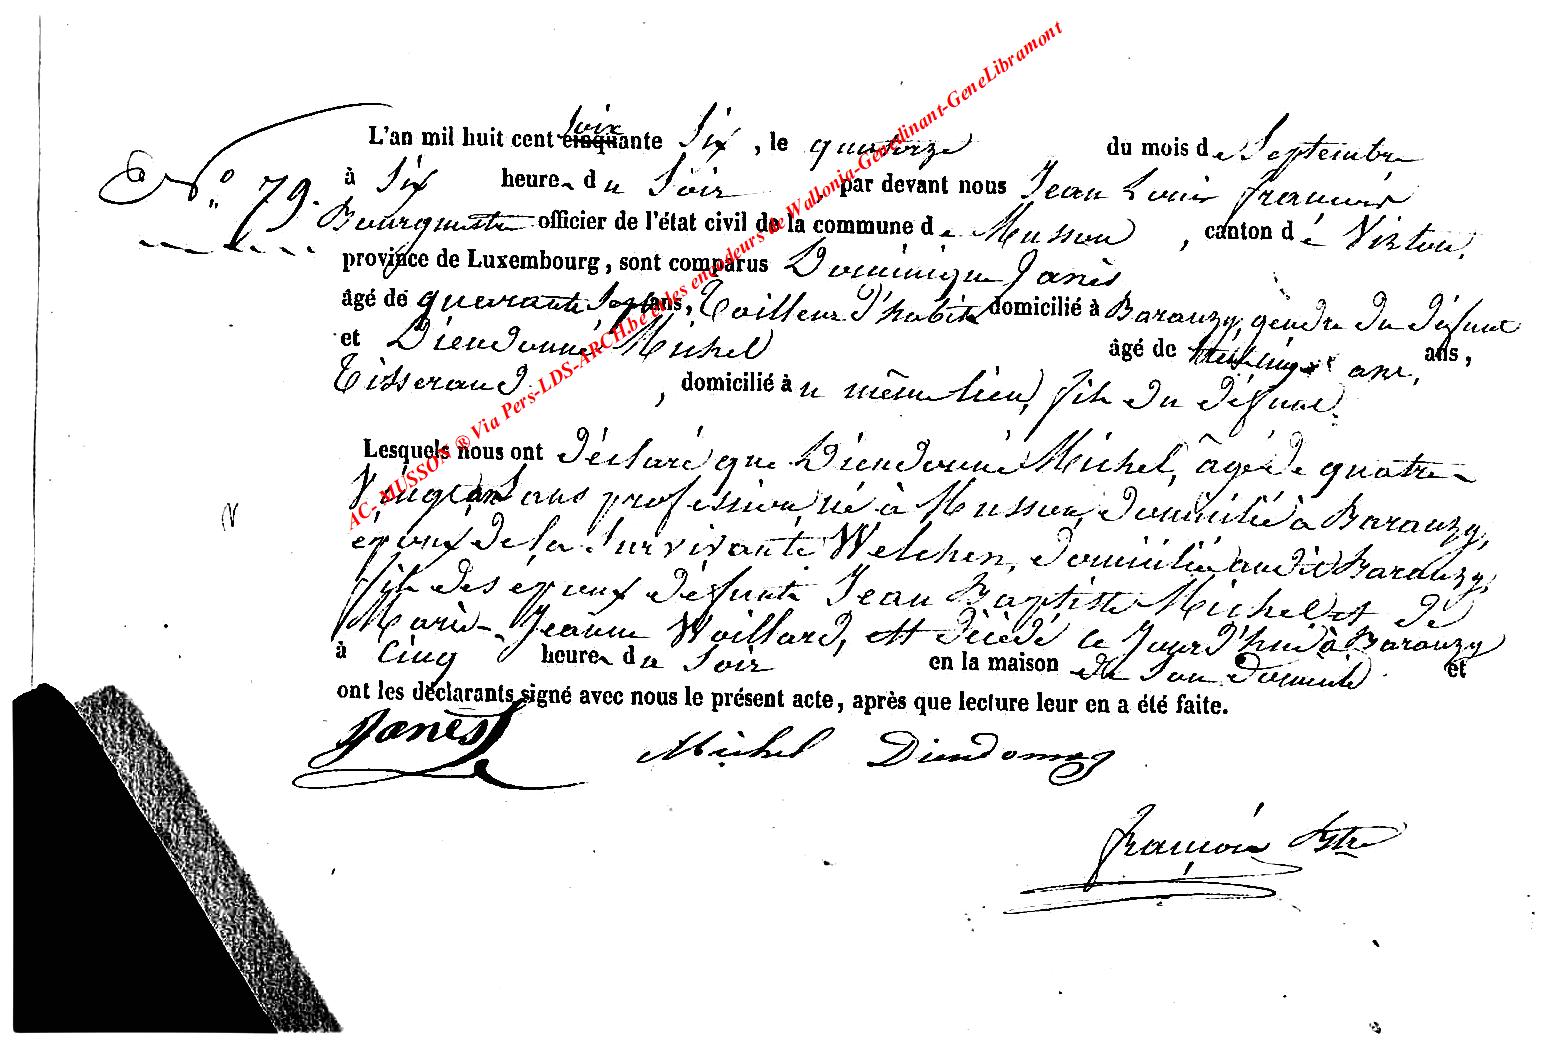 AC- MUSSON ® Via Pers-LDS-ARCH.be et les encodeurs de Wallonia-Genedinant-GeneLibramont
L'an mil huit cent cinquante soix six, le quatorze du mois de Septembre
N° 79.
à six heures du soir, par devant nous Jean Louis François
Bourgmestre officier de l'état civil de la commune de Musson, canton de Virton,
province de Luxembourg, sont comparus Dominique Janès
âgé de quarante sept ans, Tailleur d'habits domicilié à Baranzy, gendre du défunt
et Dieudonné Michel âgé de ans, ans,
Tisserand, domicilié à u même lieu, fils du défunt.
Lesquels nous ont déclaré que Dieudonné Michel, âgé de quatre
Vingt ans, sans profession né à Musson, domicilié à Baranzy,
époux de la survivante Welchen, domiciliée audit Baranzy,
fils des époux défunts Jean Baptiste Michel et de
Marie-Jeanne Waillard, est décédé ce jourd'hui à Baranzy
à cinq heures du soir en la maison de son domicile et
ont les déclarants signé avec nous le présent acte, après que lecture leur en a été faite.
Janès Michel Dieudonné
François Bgtre